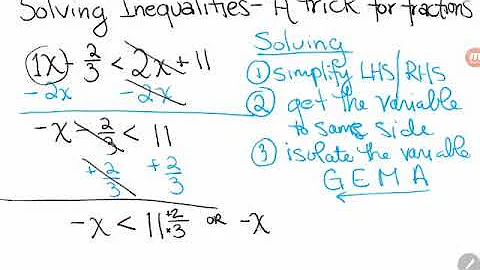 Solving Inequalities - A trick for fractions
1x - 2/3 < 2x + 11
- 2x - 2x
-x - 2/3 < 11
+ 2/3 + 2/3
-x < 11 +2/×3 OR -x
Solving
① simplify LHS/RHS
② get the variable
to same side
③ isolate the variable
G E M A